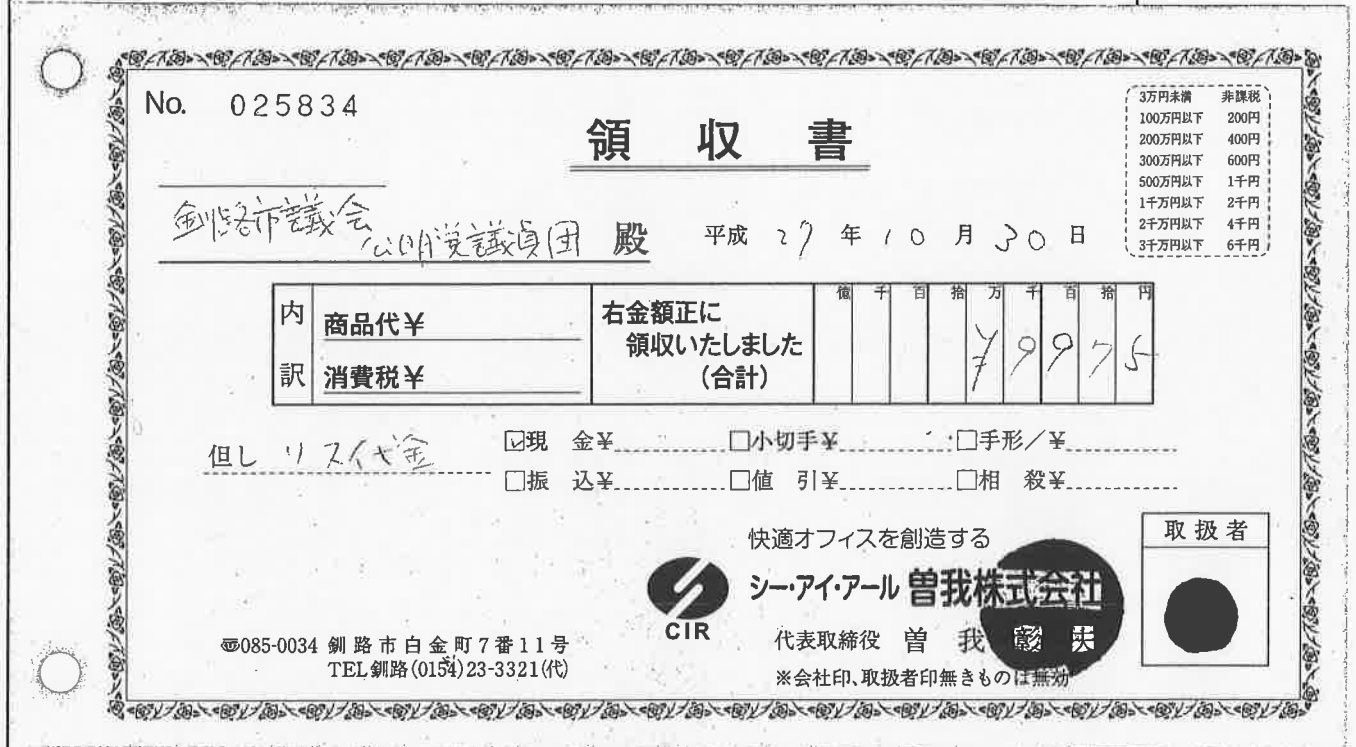 No. 025834
領収書
3万円未満 非課税
100万円以下 200円
200万円以下 400円
300万円以下 600円
500万円以下 1千円
1千万円以下 2千円
2千万円以下 4千円
3千万円以下 6千円
釧路市議会
公明党議員団 殿
平成 27 年 10 月 30 日
内訳
商品代¥
消費税¥
右金額正に
領収いたしました
(合計)
億 千 百 拾 万 千 百 拾 円
¥9975
但し リース代金
☑現 金¥ □小切手¥ □手形/¥
□振 込¥ □値 引¥ □相 殺¥
快適オフィスを創造する
シー・アイ・アール 曽我株式会社
CIR
代表取締役 曽我 彰夫
※会社印、取扱者印無きものは無効
取扱者
〠085-0034 釧路市白金町7番11号
TEL釧路(0154)23-3321(代)